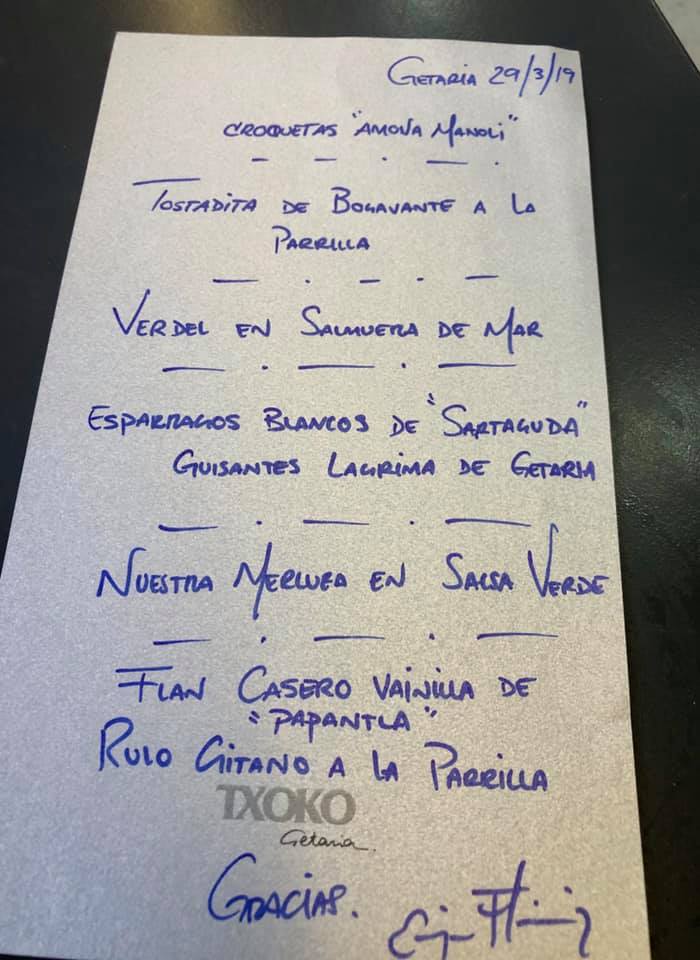 Getaria 29/3/19
Croquetas "Amona Manoli"
Tostadita de Bogavante a la
Parrilla
Verdel en Salmuera de Mar
Esparragos Blancos de "Sartaguda"
Guisantes Lagrima de Getaria
Nuestra Merluza en Salsa Verde
Flan Casero Vainilla de
"Papantla"
Rulo Gitano a la Parrilla
TXOKO
Getaria
Gracias.